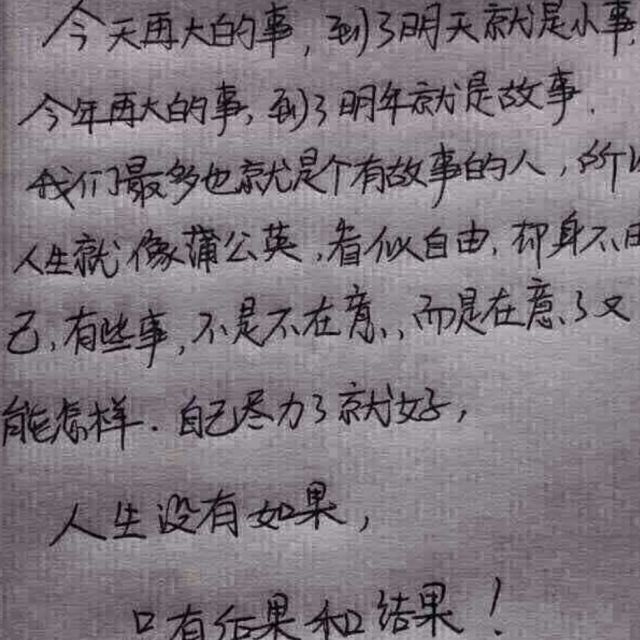 今天再大的事，到了明天就是小事，
今年再大的事，到了明年就是故事．
我们最多也就是个有故事的人，所以
人生就像蒲公英，看似自由，却身不由
己．有些事，不是不在意，而是在意了又
能怎样．自己尽力了就好，
人生没有如果，
只有后果和结果！